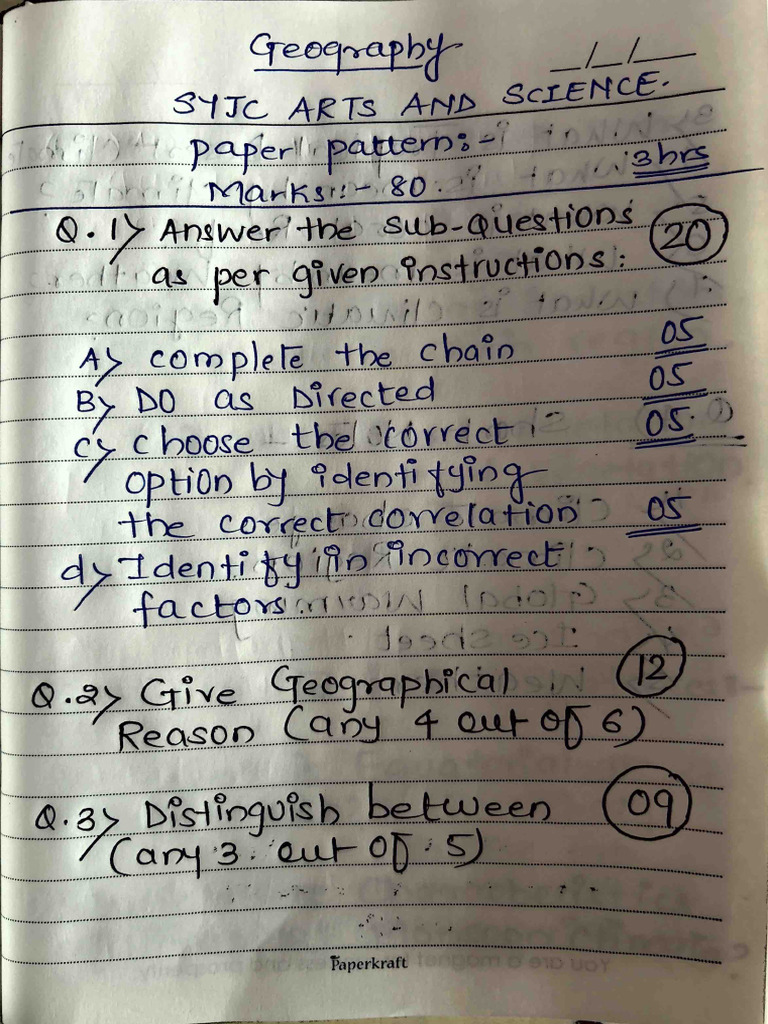 Geography
__/__/____
SYJC ARTS AND SCIENCE.
paper pattern:-
Marks:- 80. 3hrs
Q.1) Answer the Sub-Questions 20
as per given instructions:
A) complete the chain 05
B) DO as Directed 05
c) choose the correct 05
option by identifying
the correct correlation 05
d) Identify in incorrect
factors.
Q.2) Give Geographical 12
Reason (any 4 out of 6)
Q.3) Distinguish between 09
(any 3 out of 5)
Paperkraft